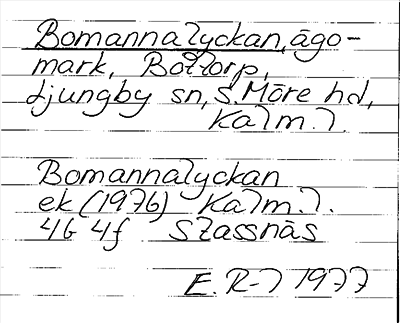 Bomannalyckan, ägo-
mark, Bottorp,
Ljungby sn, S. Möre hd,
Kalm. l.
Bomannalyckan
ek (1976) Kalm. l.
4G 4f Stassnäs
E. R-l 1977